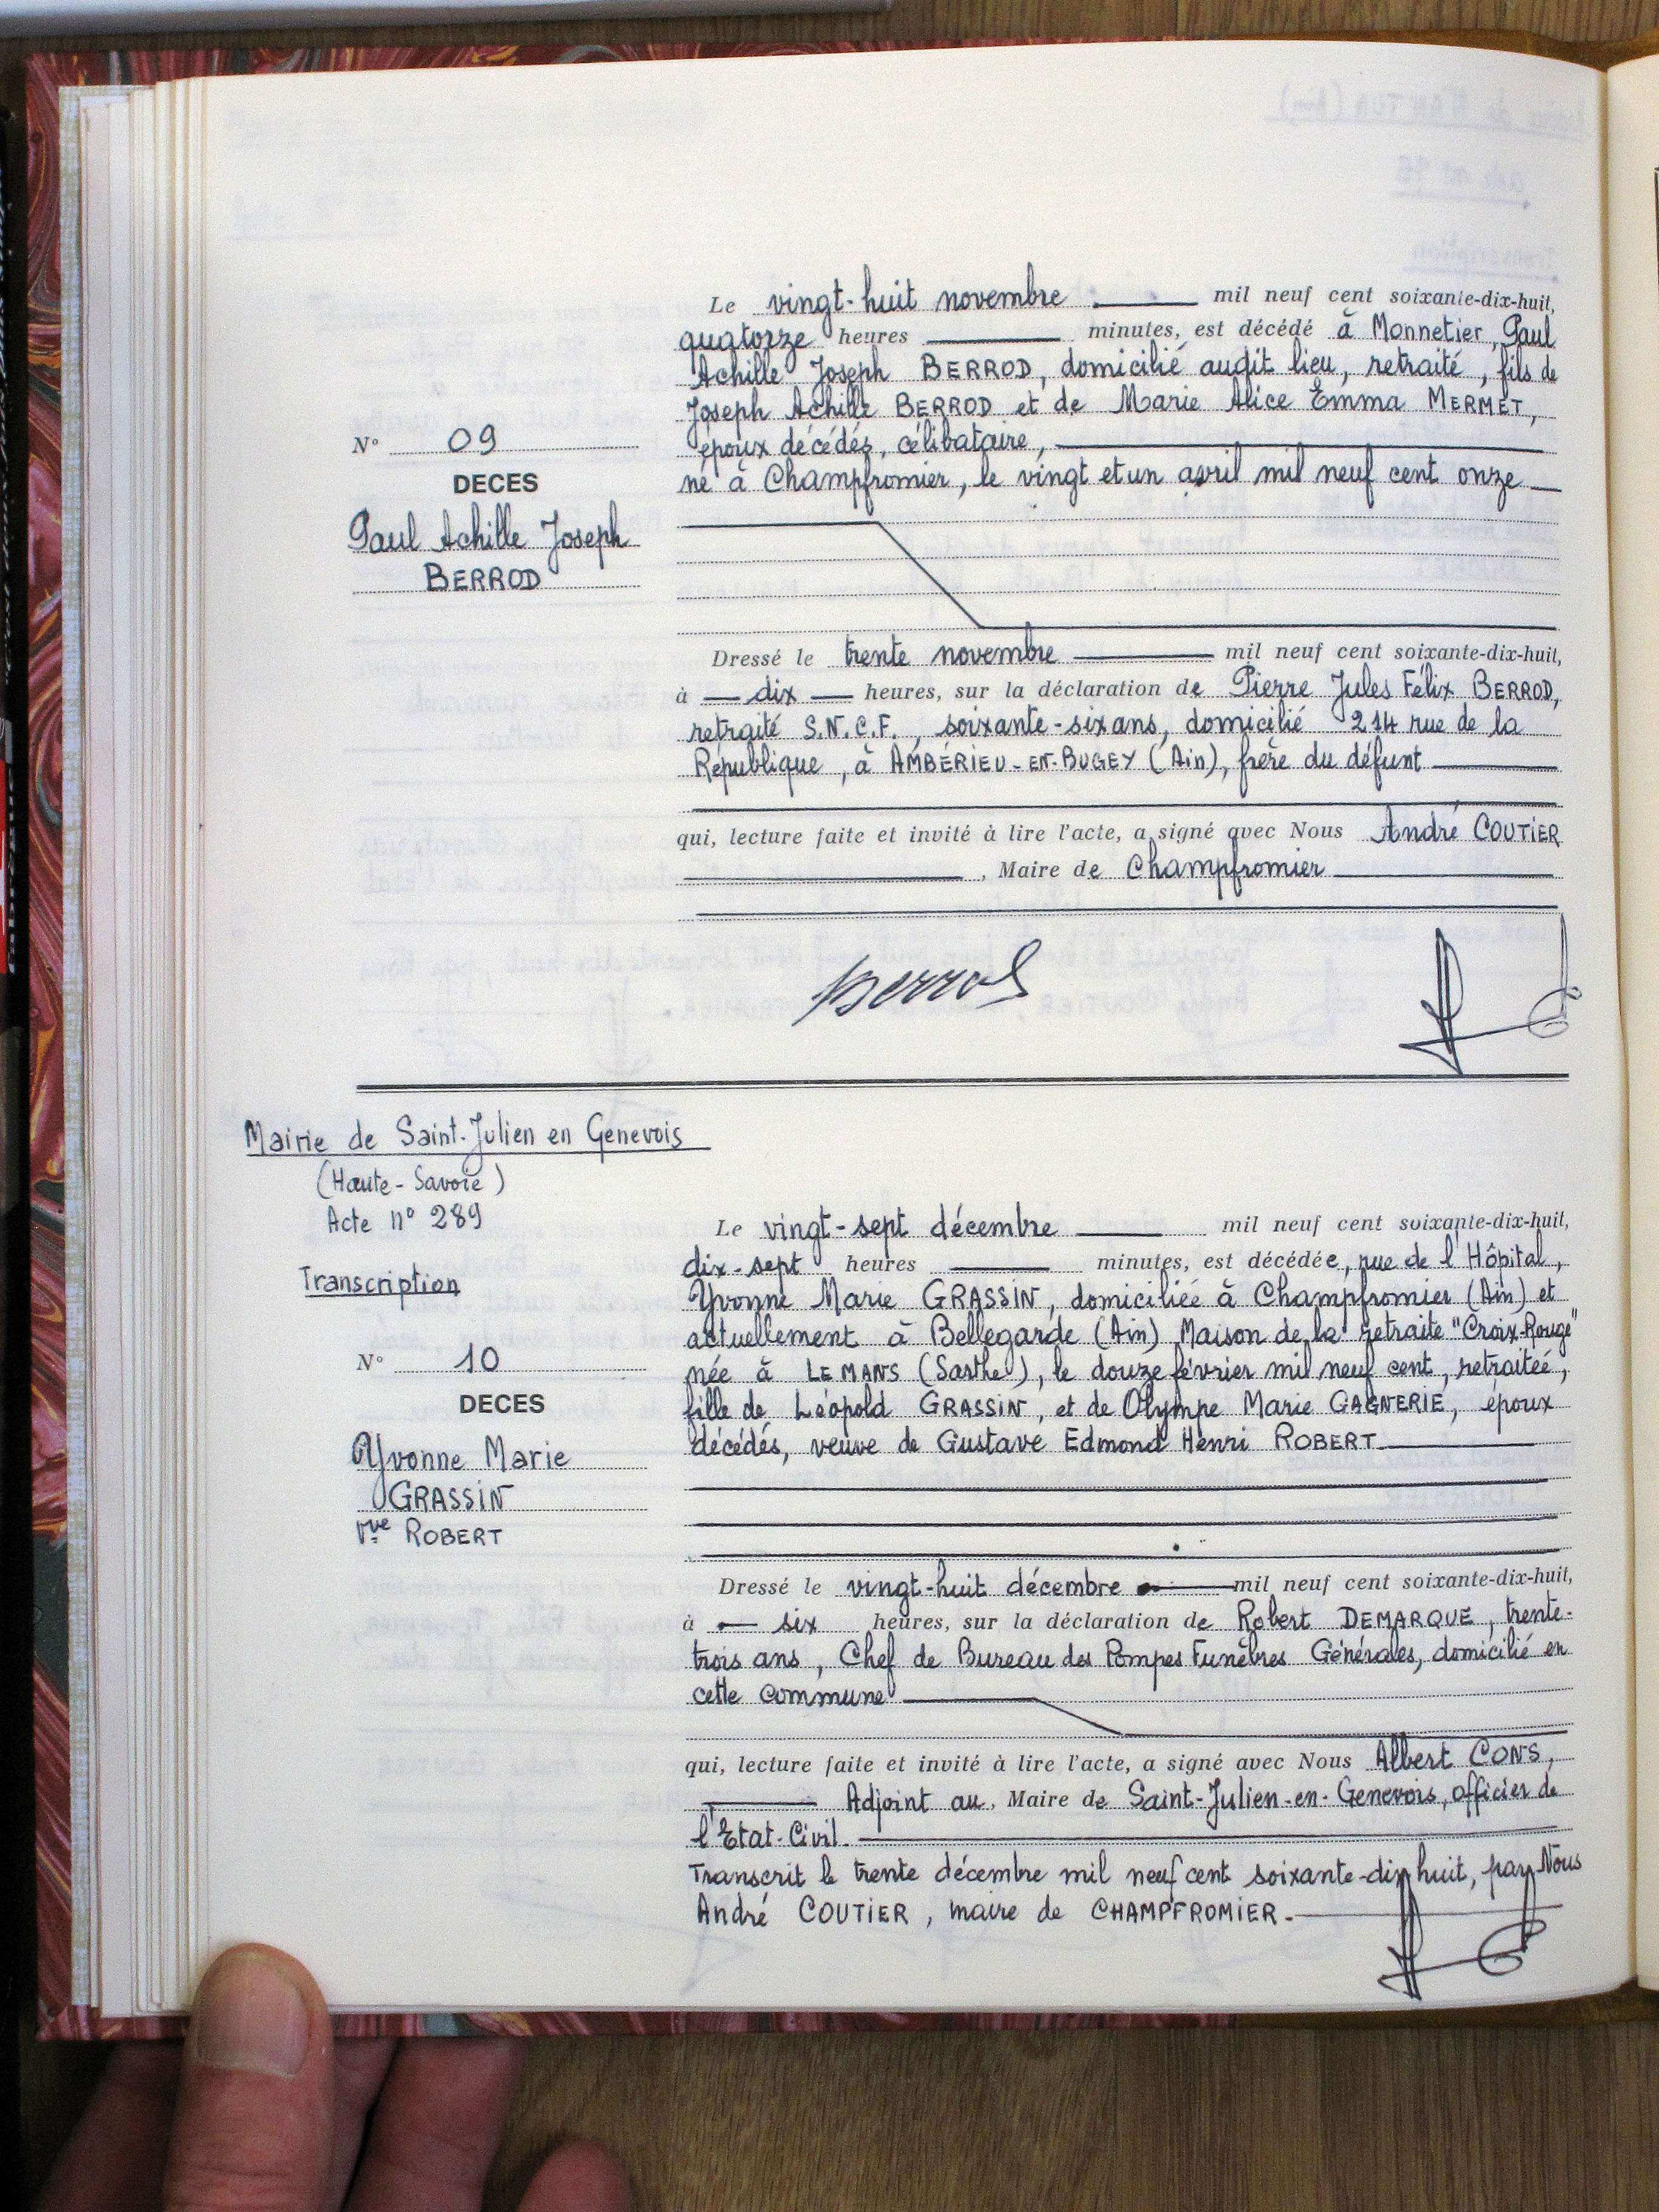 N° 09
DECES
Paul Achille Joseph
BERROD
Le vingt-huit novembre mil neuf cent soixante-dix-huit,
quatorze heures minutes, est décédé à Monnetier, Paul
Achille Joseph BERROD, domicilié audit lieu, retraité, fils de
Joseph Achille BERROD et de Marie Alice Emma MERMET,
époux décédés, célibataire,
né à Champfromier, le vingt et un avril mil neuf cent onze
Dressé le trente novembre mil neuf cent soixante-dix-huit,
à dix heures, sur la déclaration de Pierre Jules Félix BERROD,
retraité S.N.C.F., soixante-six ans, domicilié 214 rue de la
République, à AMBÉRIEU-EN-BUGEY (Ain), frère du défunt
qui, lecture faite et invité à lire l'acte, a signé avec Nous André COUTIER
, Maire de Champfromier
Berrod
Mairie de Saint-Julien en Genevois
(Haute-Savoie)
Acte n° 289
Transcription
N° 10
DECES
Yvonne Marie
GRASSIN
Vve ROBERT
Le vingt-sept décembre mil neuf cent soixante-dix-huit,
dix-sept heures minutes, est décédée, rue de l'Hôpital,
Yvonne Marie GRASSIN, domiciliée à Champfromier (Ain) et
actuellement à Bellegarde (Ain) Maison de la retraite "Croix-Rouge"
née à LE MANS (Sarthe), le douze février mil neuf cent, retraitée,
fille de Léopold GRASSIN, et de Olympe Marie GAGNERIE, époux
décédés, veuve de Gustave Edmond Henri ROBERT
Dressé le vingt-huit décembre mil neuf cent soixante-dix-huit,
à six heures, sur la déclaration de Robert DEMARQUE, trente-
trois ans, Chef de Bureau des Pompes Funèbres Générales, domicilié en
cette commune
qui, lecture faite et invité à lire l'acte, a signé avec Nous Albert CONS,
Adjoint au, Maire de Saint-Julien-en-Genevois, officier de
l'Etat-Civil.
Transcrit le trente décembre mil neuf cent soixante-dix huit, par Nous
André COUTIER, maire de CHAMPFROMIER.